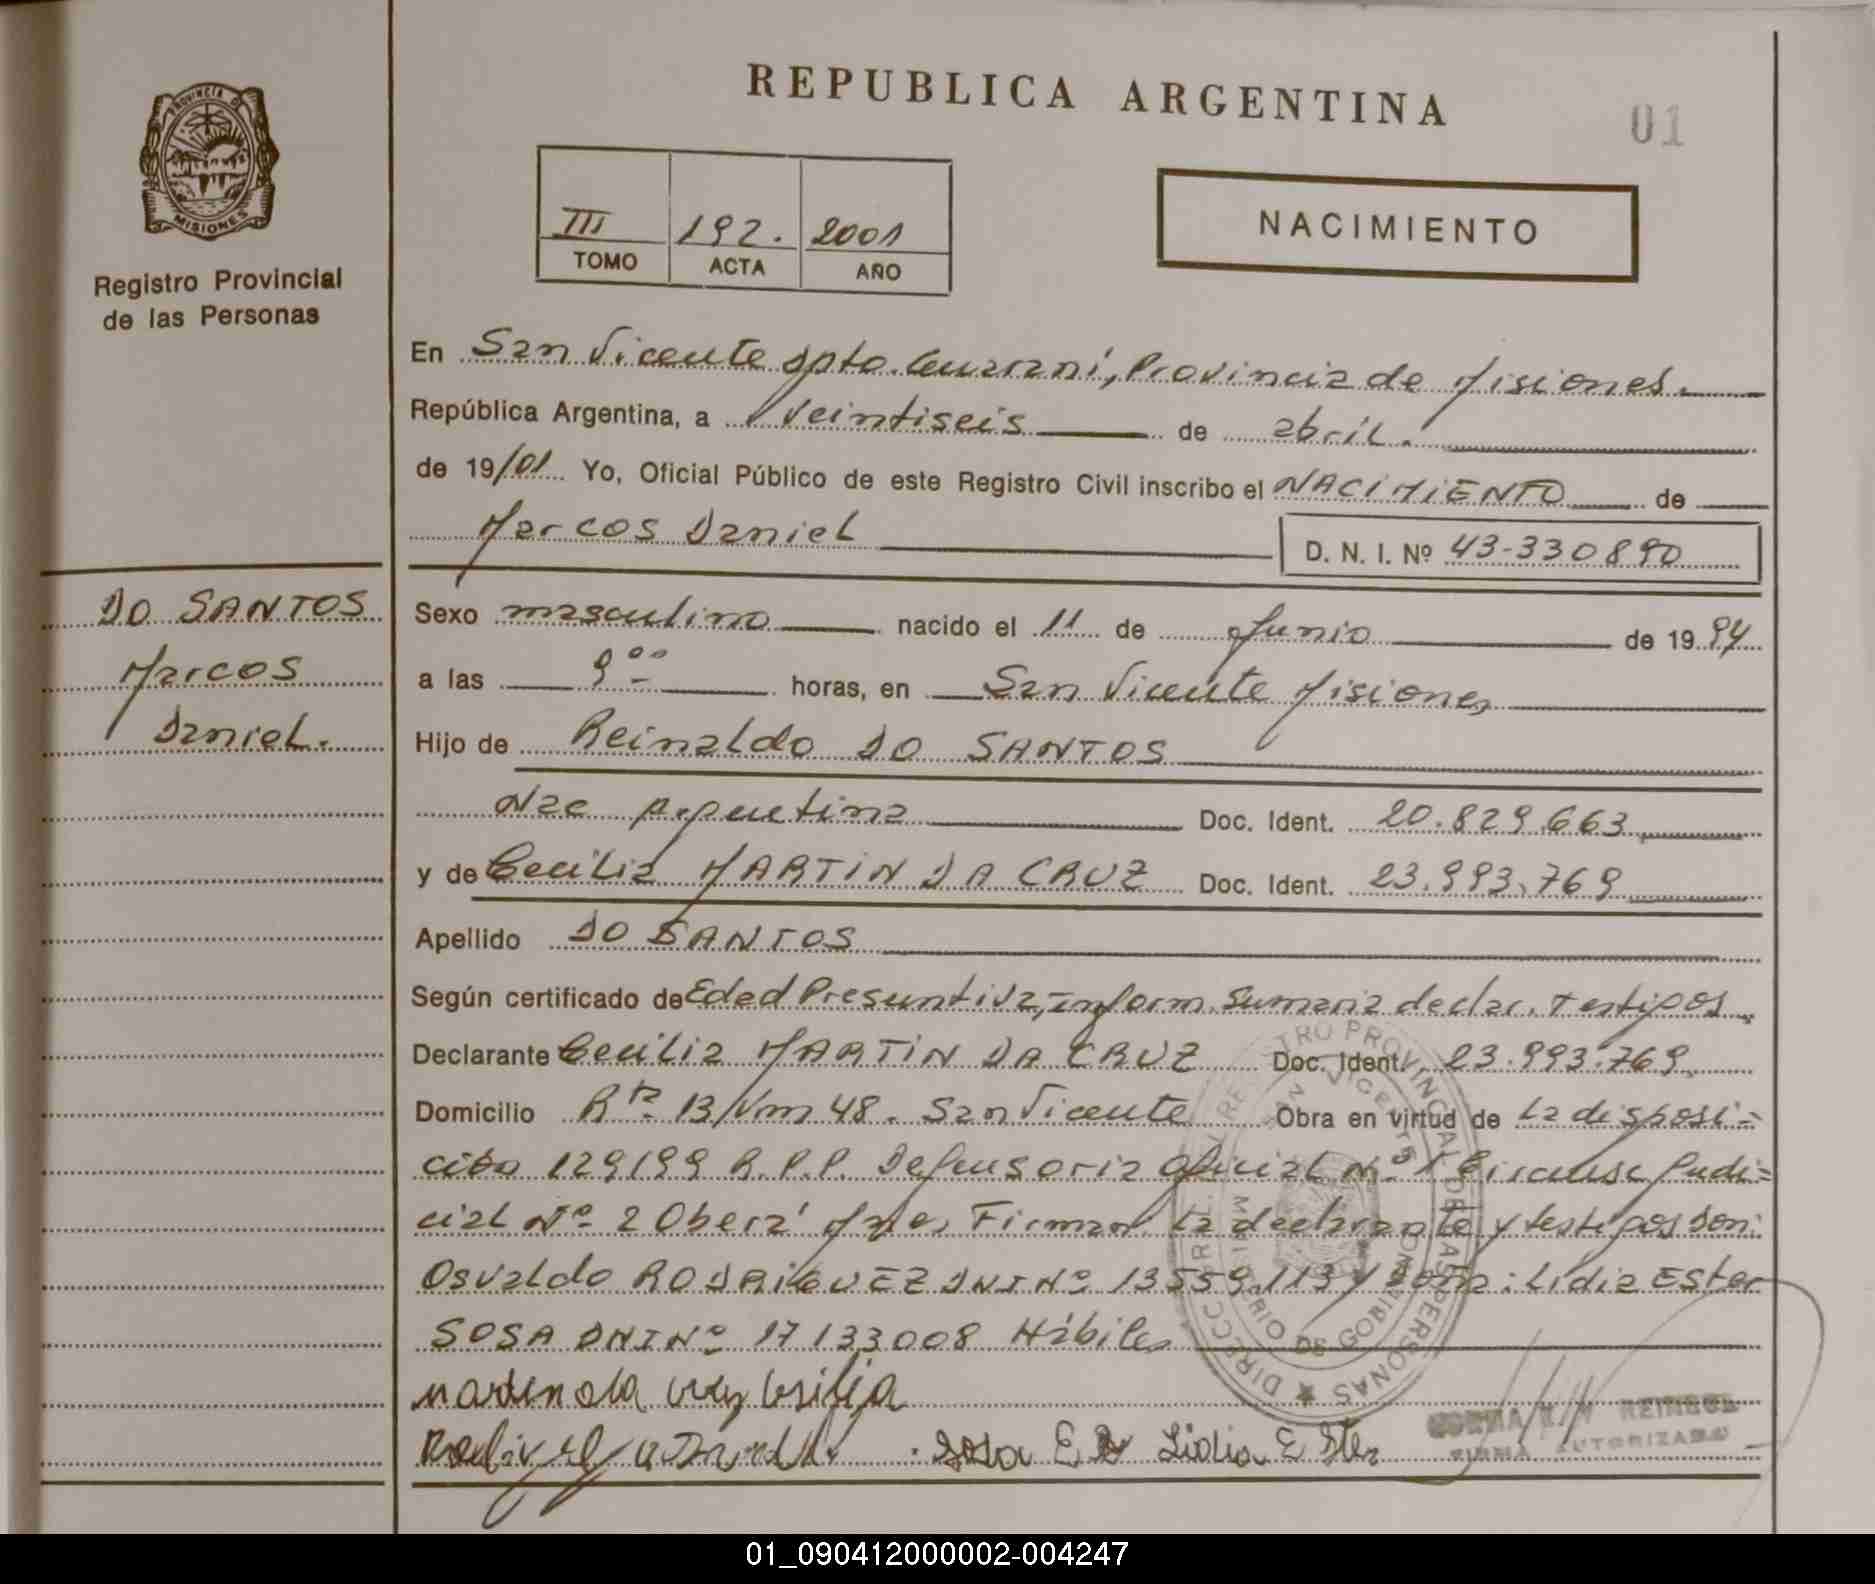 REPUBLICA ARGENTINA
01
PROVINCIA DE
MISIONES
Registro Provincial
de las Personas
III 192. 2001
TOMO ACTA AÑO
NACIMIENTO
En San Vicente dpto. Guaraní, Provincia de Misiones.
República Argentina, a veintiseis de abril.
de 19/01 Yo, Oficial Público de este Registro Civil inscribo el NACIMIENTO de
Marcos Daniel
D. N. I. Nº 43-330890
DO SANTOS
Marcos
Daniel.
Sexo masculino nacido el 11 de Junio de 19 94
a las 9 00 horas, en San Vicente Misiones
Hijo de Reinaldo DO SANTOS
Nac Argentina Doc. Ident. 20.829.663
y de Cecilia MARTIN DA CRUZ Doc. Ident. 23.993.769
Apellido DO SANTOS
Según certificado de Edad Presuntiva, Inform. Sumaria declar. Testigos
Declarante Cecilia MARTIN DA CRUZ Doc. Ident. 23.993.769
Domicilio Rta 13 Km 48. San Vicente Obra en virtud de la disposi=
ción 129/99 R.P.P. Defensoria Oficial Nº 1 Circunsc Judi=
cial Nº 2 Oberá Mnes Firman la declarante y testigos Don:
Osvaldo RODRIGUEZ DNI Nº 13559113 y Doña: Lidia Ester
SOSA DNI Nº 17133008 Hábiles
Sosa Lidia E Ster
REGISTRO PROVINCIAL DE LAS PERSONAS
SAN VICENTE
MINISTERIO DE GOBIERNO
NORMA REIMBOL
FIRMA AUTORIZADA
01_090412000002-004247